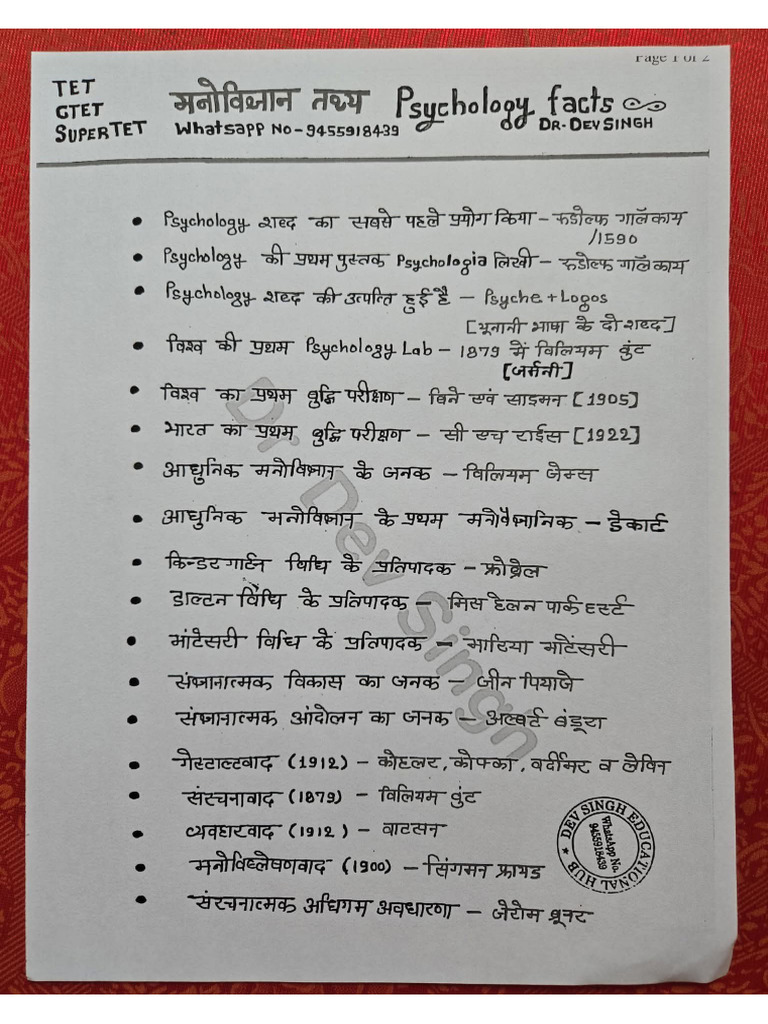 Page 1 of 2
TET
CTET
SUPERTET
मनोविज्ञान तथ्य Psychology facts
Whatsapp No-9455918439
DR. DEV SINGH
• Psychology शब्द का सबसे पहले प्रयोग किया - रुडोल्फ गॉलकाय
/1590
• Psychology की प्रथम पुस्तक Psychologia लिखी - रुडोल्फ गॉलकाय
• Psychology शब्द की उत्पत्ति हुई है - Psyche + Logos
[यूनानी भाषा के दो शब्द]
• विश्व की प्रथम Psychology Lab - 1879 में विलियम वुंट
[जर्मनी]
• विश्व का प्रथम बुद्धि परीक्षण - विने एवं साइमन [1905]
• भारत का प्रथम बुद्धि परीक्षण - सी एच राईस [1922]
• आधुनिक मनोविज्ञान के जनक - विलियम जेम्स
• आधुनिक मनोविज्ञान के प्रथम मनोवैज्ञानिक - डेकार्ट
• किन्डरगार्टन विधि के प्रतिपादक - फ्रोबेल
• डाल्टन विधि के प्रतिपादक - मिस हेलन पार्कहर्स्ट
• मांटेसरी विधि के प्रतिपादक - मारिया मांटेसरी
• संज्ञानात्मक विकास का जनक - जीन पियाजे
• संज्ञानात्मक आंदोलन का जनक - अल्बर्ट बंडूरा
• गेस्टाल्टवाद (1912) - कोहलर, कोफ्का, वर्दीमर व लेविन
• संरचनावाद (1879) - विलियम वुंट
• व्यवहारवाद (1912) - वाटसन
• मनोविश्लेषणवाद (1900) - सिंगमन फ्रायड
• संरचनात्मक अधिगम अवधारणा - जेरोम ब्रूनर
Dr. Dev Singh
DEV SINGH EDUCATIONAL HUB
WhatsApp No.
9455918439